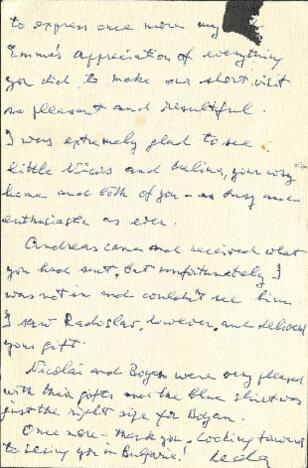 to express once more my
Emma's appreciation of everything
you did to make our short visit
so pleasant and resultful.
I was extremely glad to see
little and your cosy
home and both of you - as busy and
enthusiastic as ever.
Andreas came and received what
you had sent, but unfortunately I
was not in and couldn't see him.
I saw Radoslav, however, and delivered
your gift.
Nicolai and Boyan were very pleased
with their gifts and the blue shirt was
just the right size for Boyan.
Once more - thank you. Looking forward
to seeing you in Bulgaria!